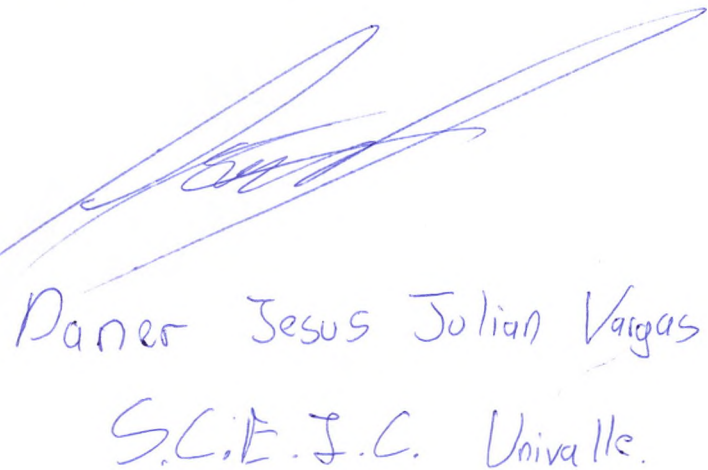 Daner Jesus Julian Vargas
S.C.E.I.C. Univalle.